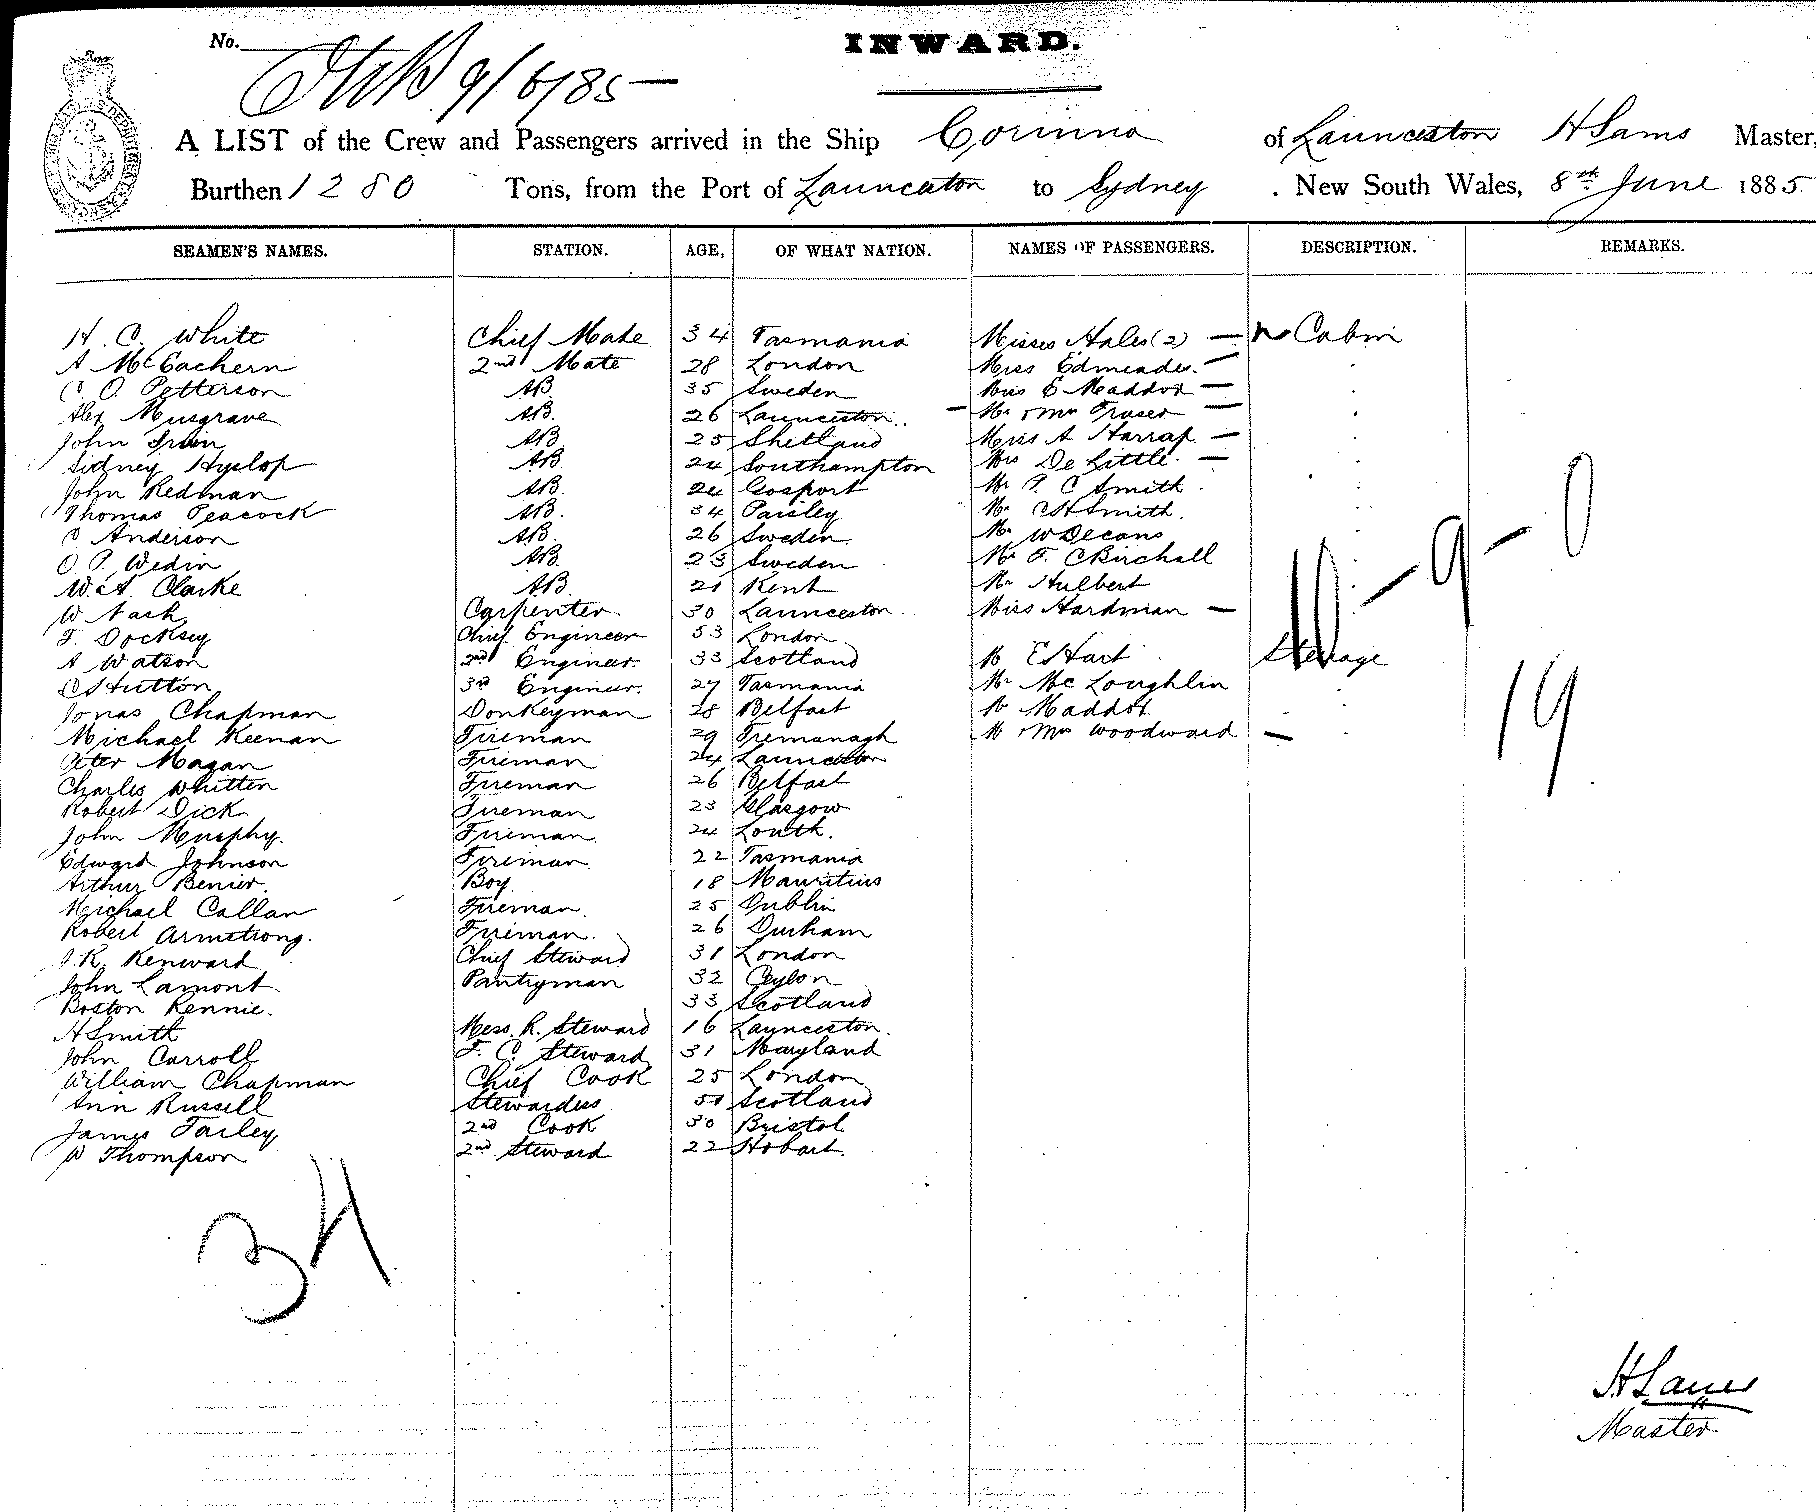 No.
INWARD.
9/6/85 —
A LIST of the Crew and Passengers arrived in the Ship Corinna of Launceston H Sams Master,
Burthen 1280 Tons, from the Port of Launceston to Sydney . New South Wales, 8th June 1885
SEAMEN'S NAMES. STATION. AGE, OF WHAT NATION. NAMES OF PASSENGERS. DESCRIPTION. REMARKS.
H. C. White Chief Mate 34 Tasmania Misses Hales (2) — Cabin
A McEachern 2nd Mate 28 London Miss Edmeades. —
C O. Petterson AB. 35 Sweden Miss E Maddox —
Alex Musgrave AB. 26 Launceston. — Mr & Mrs Fraser —
John Irvin AB. 25 Shetland Miss A Harrap —
Sidney Hyslop AB. 24 Southampton Mrs De Little. —
John Redman AB. 24 Gosport Mr P. C Smith.
Thomas Peacock AB. 34 Paisley Mr CH Smith.
C Anderson AB. 26 Sweden. Mr W Decans
O P. Wedin AB. 23 Sweden Mr F. C Birchall
W. A. Clarke AB. 21 Kent Mr Hulbert
W Nash Carpenter. 30 Launceston. Miss Hardman —
F. Docksey Chief Engineer 53 London
A Watson 2nd Engineer. 33 Scotland Mr E Hart Steerage
C Hutton 3rd Engineer. 27 Tasmania Mr Mc Loughlin
Jonas Chapman Donkeyman 28 Belfast Mr Maddox
Michael Keenan Fireman 29 Fremanagh Mr & Mrs Woodward —
Peter Magan Fireman 24 Launceston
Charles Whitten Fireman 26 Belfast
Robert Dick Fireman 23 Glasgow
John Murphy. Fireman 24 Louth.
Edward Johnson Fireman 22 Tasmania
Arthur Benier. Boy 18 Mauritius
Michael Callan Fireman. 25 Dublin
Robert Armstrong. Fireman. 26 Durham
J. R. Kenward Chief Steward 31 London
John Lamont Pantryman 32 Ceylon
Boston Rennie. 33 Scotland
H Smith Mess. R. Steward 16 Launceston.
John Carroll F. C. Steward 31 Maryland
William Chapman Chief Cook 25 London
Ann Russell Stewardess Scotland
James Farley 2nd Cook 30 Bristol
W Thompson 2nd Steward 22 Hobart.
10 - 9 - 0
19
34
H Sams
Master